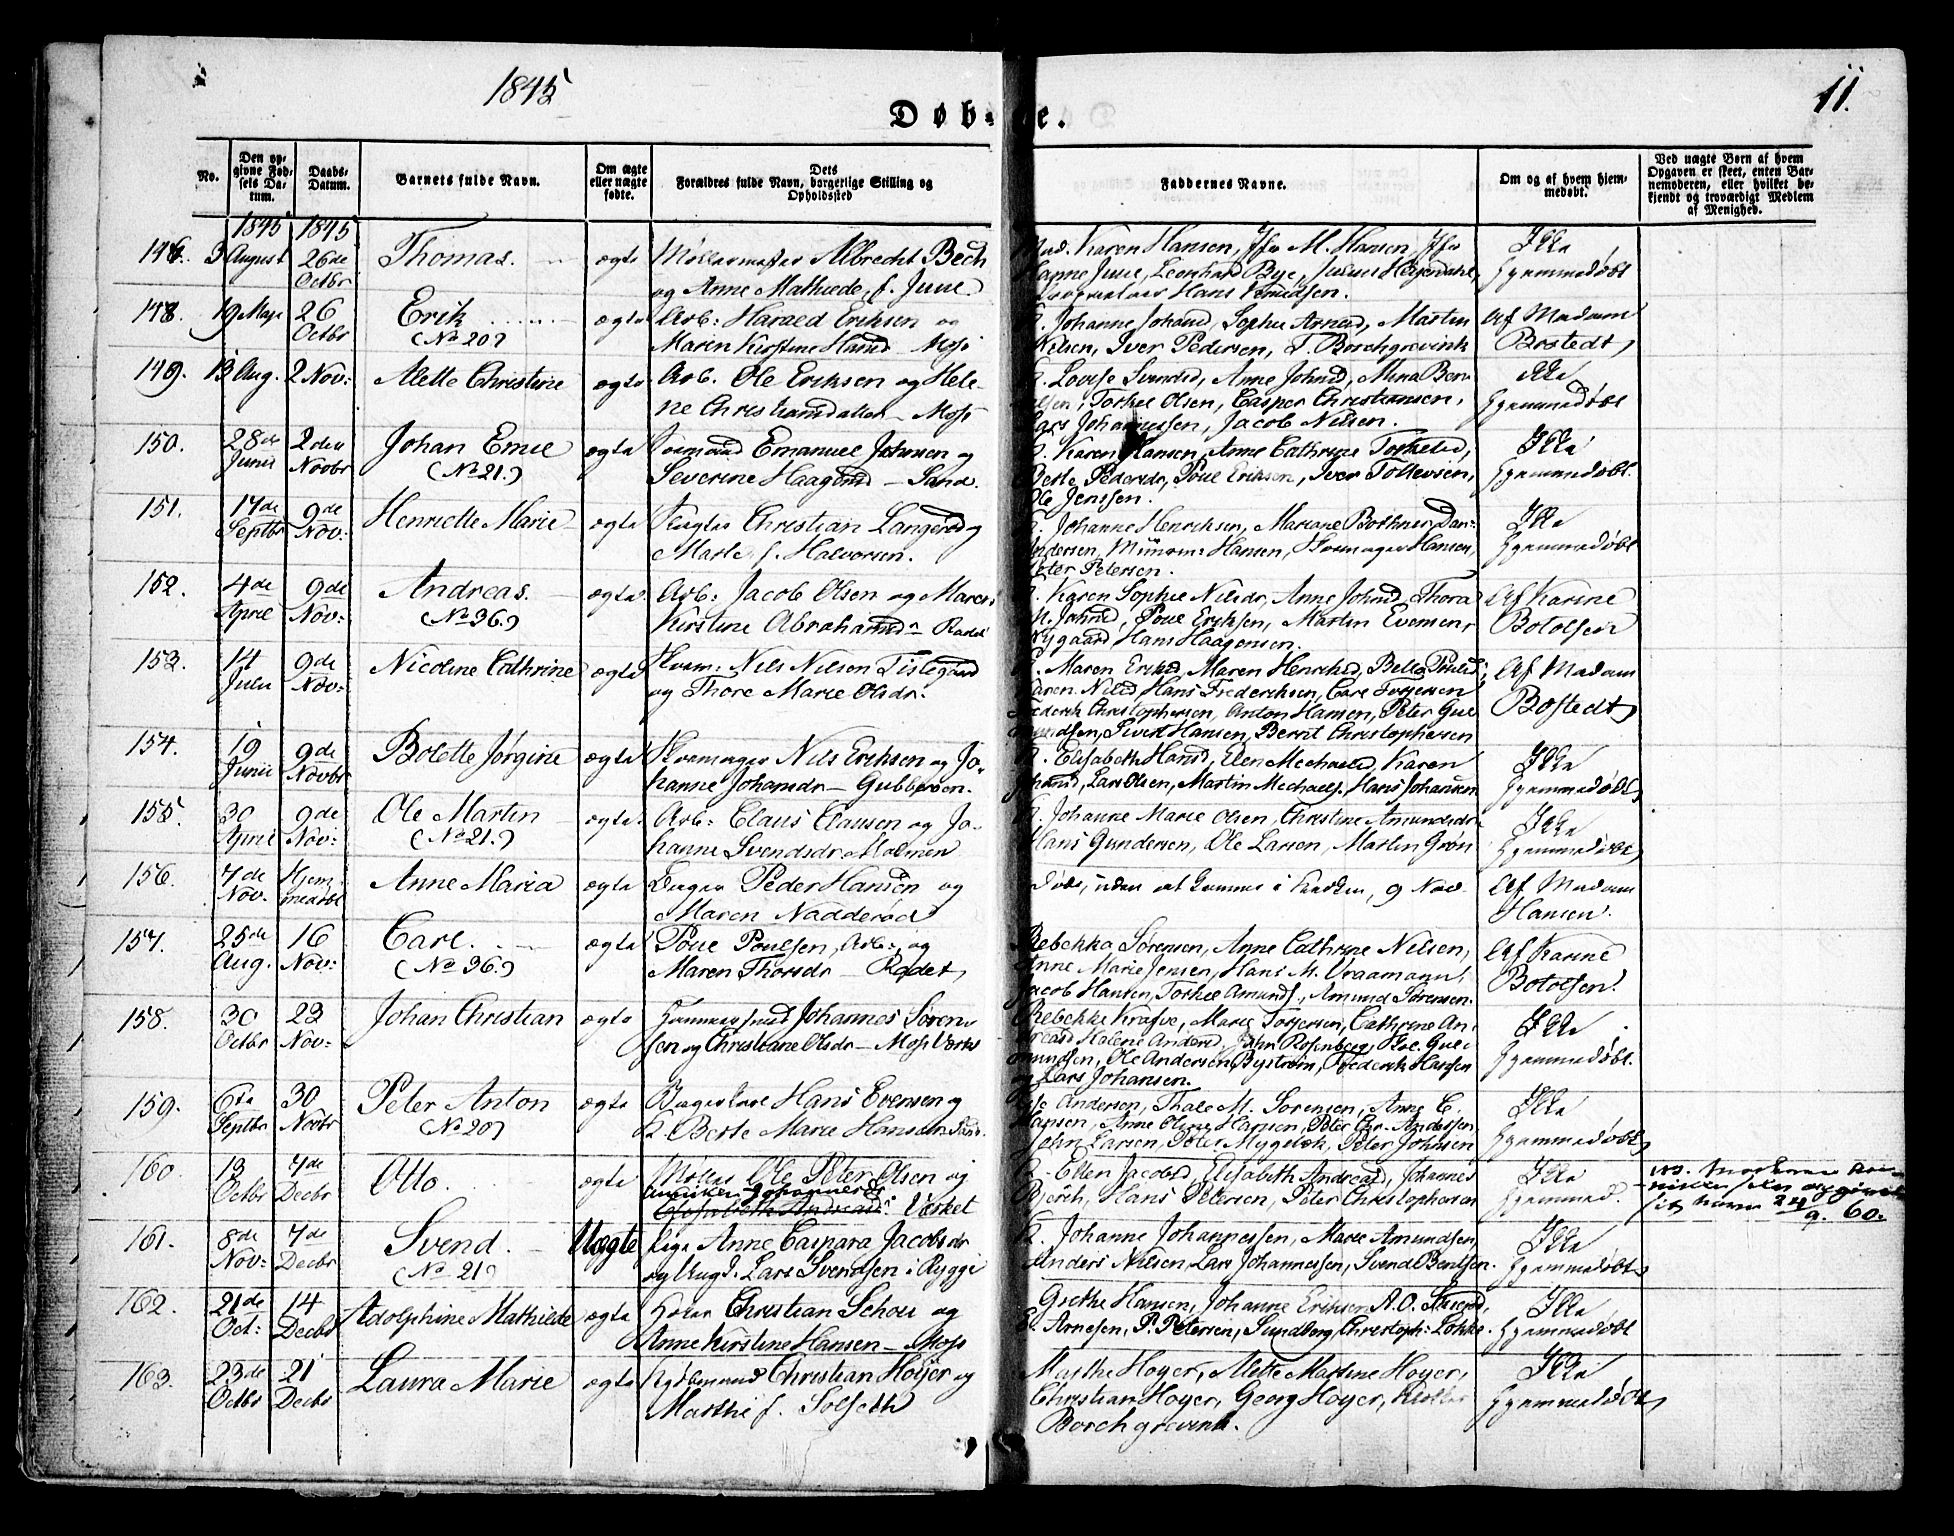 1845
11.
Døbte.
No.
Den opgivne Fødsels Datum.
Daabs-Datum.
Barnets fulde Navn.
Om ægte eller uægte fødte.
Dets Forældres fulde Navn, borgerlige Stilling og Opholdssted
Faddernes Navne.
Om og af hvem hjemmedøbt.
Ved uægte Børn af hvem Opgaven er skeet, enten Barnemoderen, eller hvilket bekjendt og troværdigt Medlem af Menighed.
1845 1845
146. 3 August 26de Octbr Thomas. ægte Møllermester Albrecht Bech
og Anne Mathilde, f. Juue
Mad. Karen Hansen, Jfr M. Hansen, Jfr
Hanne Juue, Leonhard Bye, Julius
Hans Knudsen.
Ikke
hjemmedøbt
148. 19 Maji 26 Octbr Erik ægte Arb: Harald Eriksen og
(No 20)
Maren Kirstine Hansd Moss
K. Johanne Johansd, Sophie Arnesd, Martin
Nielsen, Iver Pedersen, T. Borchgrevink
Af Madam
Bostedt
149. 13 Aug. 2 Nov: Alette Christine ægte Arb. Ole Eriksen og Hele-
ne Christiansdatter Moss
K. Lovise Svendsd, Anne Johnsd, Mina
Torkel Olsen, Casper Christiansen,
Lars Johannessen, Jacob Nilsen.
Ikke
hjemmedøbt
150. 28de Junii 2den Novbr Johan Emil ægte Emanuel Johnsen og
(No 21.)
Severine Haagensd Sand.
K. Karen Hansen, Anne Cathrine Torkelsd,
Berte Pedersdr, Poul Eriksen, Iver Tollevsen,
Ole Jenssen.
Ikke
hjemmedøbt.
151. 17de Septbr 9de Nov: Henriette Marie ægte Christian Langerød og
Marte f. Halvorsen.
K. Johanne Henriksen, Mariane Bothner, Dan:
Andersen, Hansen, Hansen,
Peter Petersen.
Ikke
hjemmedøbt
152. 4de April 9de Nov: Andreas. ægte Arb: Jacob Olsen og Maren
(No 36.)
Kirstine Abrahamsd
K. Karen Sophie Nilsdr, Anne Johnsd, Thora
M. Johnsd, Poul Eriksen, Martin Evensen,
Nygaard Hans Haagensen.
Af Karine
Botolfsen
153. 14 Julii 9de Nov: Nicoline Cathrine ægte Skrem: Nils Nilsen Tislegaard
og Thore Marie Olsdr.
K. Maren Eriksd, Maren Henriksd, Bella Poulsd,
Karen Nilsd Hans Frederiksen, Carl Torgersen
Frederik Christophersen, Anton Hansen, Peter Gul
Sivert Hansen, Bernt Christophersen
Af Madam
Bostedt
154. 19 Junii 9de Novbr Bolette Jørgine ægte Nils Eriksen og Jo-
hanne Johansdr Gubberøen.
K. Elisabeth Hansd, Elen Mechaelsd, Karen
Lars Olsen, Martin Mechaels. Hans Johansen
Ikke
hjemmedøbt
155. 30 April 9de Nov: Ole Martin ægte Arb: Claus Clausen og Jo-
(No 21.)
hanne Svendsdr Molmen
K. Johanne Marie Olsen, Christine Amundsdr
Hans Gundersen, Ole Larsen, Martin Grøn
Ikke
hjemmedøbt
156. 7de Nov. Hjemmedøbt Anne Maria ægte Peder Hansen og
Maren Nadderød
Døbt, uden at komme i Kirken, 9 Nov.
Af Madam
Hansen.
157. 25de Aug. 16 Nov: Carl. ægte Poul Poulsen, Arb: og
(No 36.)
Maren Thorsdr Rødet
Rebekka Sørensen, Anne Cathrine Nilsen,
Anne Marie Jensen, Hans M. Vraamann,
Jacob Hansen, Torkel Amunds., Amund Sørensen.
Af Karine
Botolfsen.
158. 30 Octbr 23 Nov: Johan Christian ægte Johannes Soren-
sen og Christiane Olsdr Moss Værk
Rebekke Krafve, Marie Torgersen, Cathrine An-
dreasd Malene Andersd, John Rosenberg, Ole Gul-
mundsen, Ole Andersen Bystrøm, Frederik Hansen
og Lars Johansen.
Ikke
hjemmedøbt.
159. 6te Septbr 30 Novbr Peter Anton ægte Hans Evensen og
(No 20)
K. Berte Marie Hansdr Sand.
Andersen, Thale M. Sorensen, Anne C.
Hansen, Anne Oline Hansen, Peter Chr. Andersen
John Larsen, Peter Mygeløk, Peter Johnsen
Ikke
hjemmedøbt
160. 13 Octbr 7de Decbr Otto. ægte Møller Ole Peter Olsen og
Elisabeth Andreasd: Værket
K. Ellen Jacobsd, Elisabeth Andreasd, Johannes
Bjørk, Hans Petersen, Peter Christophersen
Ikke
hjemmed.
sit navn 24/9. 60.
161. 8de Nov: 7de Decbr Svend. Uægte Pige Anne Caspara Jacobsdr
(No 21)
og Ungk. Lars Svendsen i Rygge
K. Johanne Johannessen, Marie Amundsen,
Anders Nilsen, Lars Johannessen, Svend Bentsen.
Ikke
hjemmedøbt
162. 21de Oct: 14 Decbr Adolphine Mathilde ægte Christian Schou og
Anne Kirstine Hansen Moss
Grethe Hansen, Johanne Eriksen, A. O.
E. Arnesen, P. Petersen, Sundberg, Christoph: Løkke.
Ikke
hjemmedøbt
163. 23de Octbr 21 Decbr Laura Marie ægte Kjøbmand Christian Høyer og
Marthe f. Solseth
Marthe Høyer, Alette Martine Høyer,
Christian Høyer, Georg Høyer,
Borchgrevink.
Ikke
hjemmedøbt